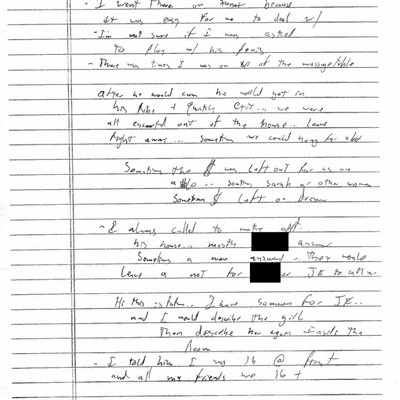 - I went there on [...] because
it was easy for me to deal w/
- I'm not sure if I was asked
to play w/ his penis
- There was times I was on top of the massage table
after he would cum he would get in
his robe + quickly exit.. we were
all escorted out of the house.. leave
right away... Sometimes we could hang for a bit
Sometimes the $ was left out for us on
a table.. sometimes, sarah or other woman
Sometimes $ left on Dresser
- I always called to make appt
his house.. mostly answer
Sometimes a man answered.. They would
leave a not for or JE to call me
Hi this is .. I have someone for JE..
and I would describe the girl
Then describe her again inside the
Room
- I told him I was 16 @ first
and all my friends were 16 +